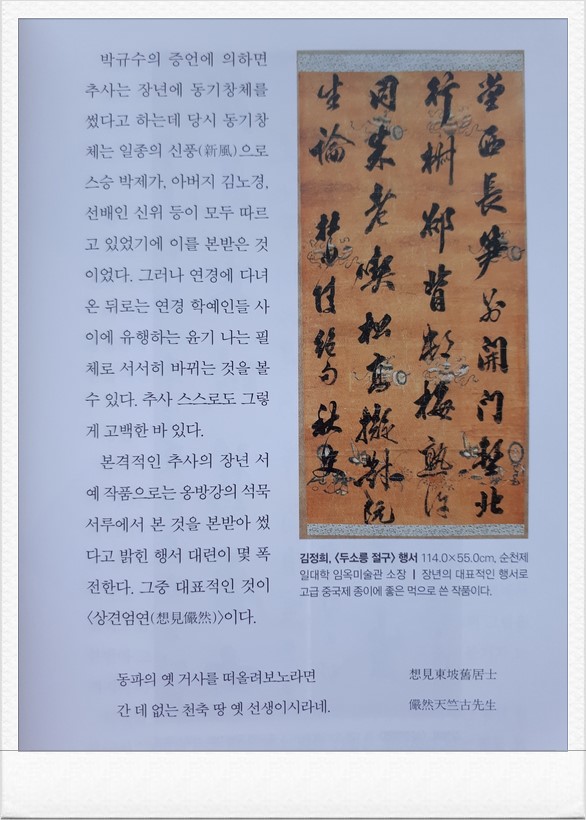 박규수의 증언에 의하면
추사는 장년에 동기창체를
썼다고 하는데 당시 동기창
체는 일종의 신풍(新風)으로
스승 박제가, 아버지 김노경,
선배인 신위 등이 모두 따르
고 있었기에 이를 본받은 것
이었다. 그러나 연경에 다녀
온 뒤로는 연경 학예인들 사
이에 유행하는 윤기 나는 필
체로 서서히 바뀌는 것을 볼
수 있다. 추사 스스로도 그렇
게 고백한 바 있다.
본격적인 추사의 장년 서
예 작품으로는 옹방강의 석묵
서루에서 본 것을 본받아 썼
다고 밝힌 행서 대련이 몇 폭
전한다. 그중 대표적인 것이
〈상견엄연(想見儼然)〉이다.
堂西長笋別開門塹北
行椒却背邨梅熟許
同朱老喫松高擬對阮
生論 杜少陵絶句 秋史
김정희, 〈두소릉 절구〉 행서 114.0×55.0cm, 순천제
일대학 임옥미술관 소장 | 장년의 대표적인 행서로
고급 중국제 종이에 좋은 먹으로 쓴 작품이다.
동파의 옛 거사를 떠올려보노라면
간 데 없는 천축 땅 옛 선생이시라네.
想見東坡舊居士
儼然天竺古先生